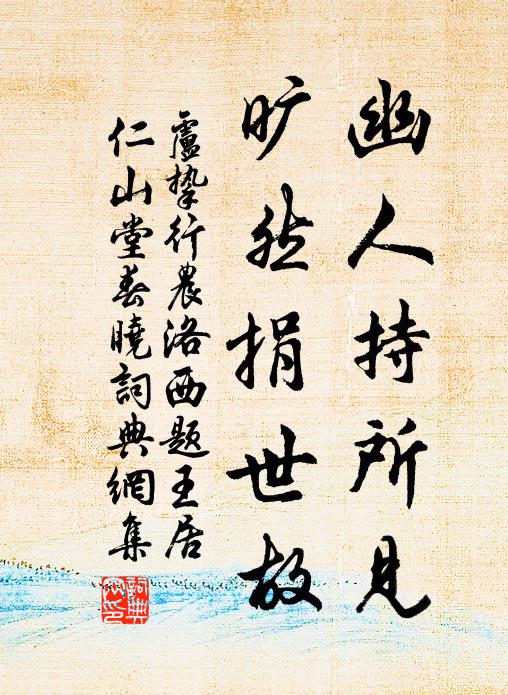 幽人持所見
旷然捐世故
盧摯行農洛西題王居
仁山堂春曉詞典網集